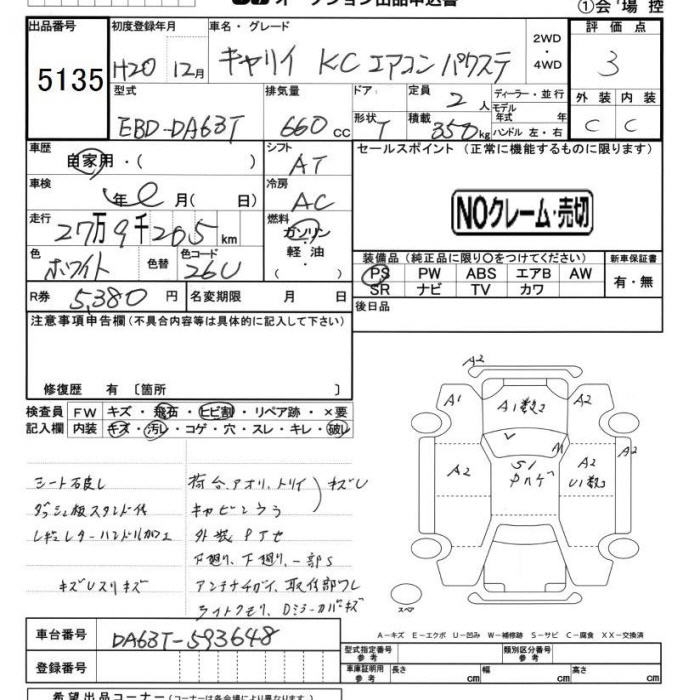 オークション出品申込書
①会場控
出品番号 5135
初度登録年月 H20 12月
車名・グレード キャリイ KC エアコン パワステ
2WD・4WD
評価点 3
外装 C 内装 C
型式 EBD-DA63T
排気量 660 cc
ドア・形状 T
定員 2 人
積載 350 kg
ディーラー・並行
モデル年式 年
ハンドル 左・右
車歴 自家用・( )
シフト AT
セールスポイント (正常に機能するものに限ります)
車検 年 月( 日)
冷房 AC
NOクレーム・売切
走行 27万9千205 km
燃料 ガソリン・軽油・
色 ホワイト 色替 色コード 26U
装備品 (純正品に限り○をつけてください)
新車保証書
PS PW ABS エアB AW
SR ナビ TV カワ
有・無
R券 5,380 円 名変期限 月 日
後日品
注意事項申告欄 (不具合内容等は具体的に記入して下さい)
修復歴 有 〔箇所 〕
検査員記入欄
FW キズ・飛石・ヒビ割・リペア跡・×要
内装 キズ・汚レ・コゲ・穴・スレ・キレ・破レ
ダッシュ板スタンド付
キズUスリキズ
荷台、アオリ、トリイ キズU
下廻り、下廻り、一部S
ライトクモリ、Dミラーカバーキズ
A2
A1 A1数2 A2
A2 S1 A2
U1数3
スペア
A-キズ E-エクボ U-凹み W-補修跡 S-サビ C-腐食 XX-交換済
車台番号 DA63T-593648
登録番号
型式指定番号 参考
類別区分番号 参考
車庫証明用 参考 長さ cm 幅 cm 高さ cm
希望出品コーナー (コーナーは各会場により異なります)